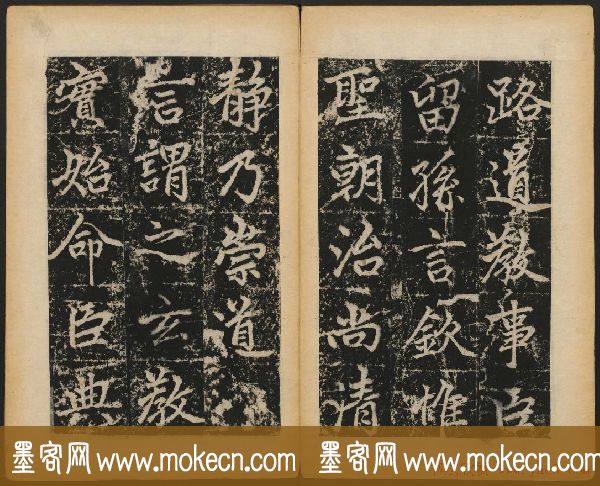 路道教事臣
留孫言欽惟
聖朝治尚清
靜乃崇道
言謂之玄教
實始命臣典
墨客网 www.mokecn.com 墨客网 www.mokecn.com